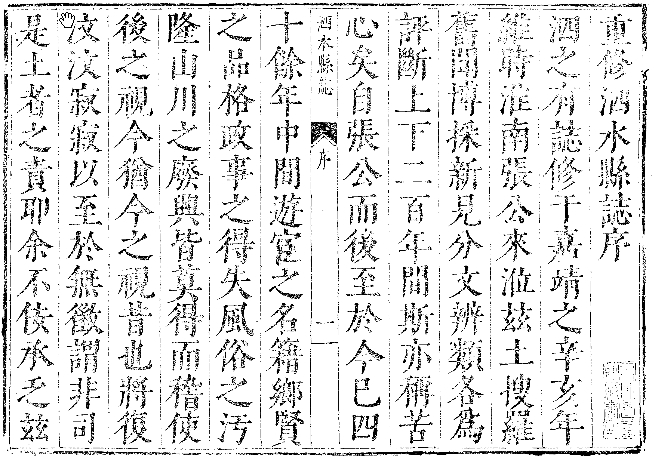 重修泗水縣誌序
泗之有誌修于嘉靖之辛亥年
維時淮南張公來涖兹土搜羅
舊聞博採新見分文辨類各為
評斷上下二百年間斯亦稱苦
心矣自張公而後至於今已四
泗水縣誌
序
一
十餘年中間遊宦之名籍鄉賢
之品格政事之得失風俗之污
隆山川之廢興皆莫得而稽使
後之視今猶今之視昔也將復
汶汶寂寂以至於無徵謂非司
是土者之責耶余不佞承乏兹